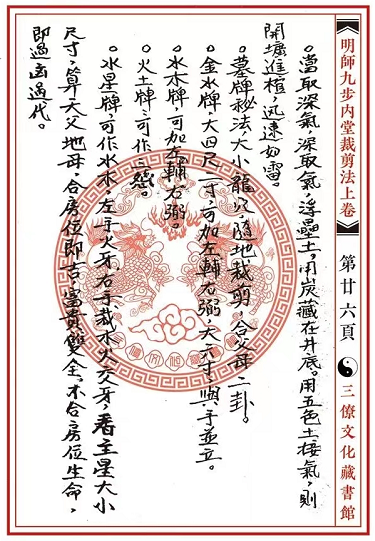 《明師九步内堂裁剪法上卷》 第廿六頁 三僚文化藏書館
。當取深氣,深取氣,浮壘土,用炭藏在井底。用五色土接氣,則
開壙進棺,迅速如雷。
。墓碑秘法大小龍穴,隨地裁剪,合父母二卦。
。金水牌,大四尺二寸,可加左輔右弼,大六寸,與手並立。
。水木牌,可加左輔右弼。
。火土牌,可作
。水星牌,可作水木,左手火牙,右手裁水火交牙,看主星大小
尺寸,算天父地母,合房位即吉,富貴雙全,不合房位生命,
即過凶過代。